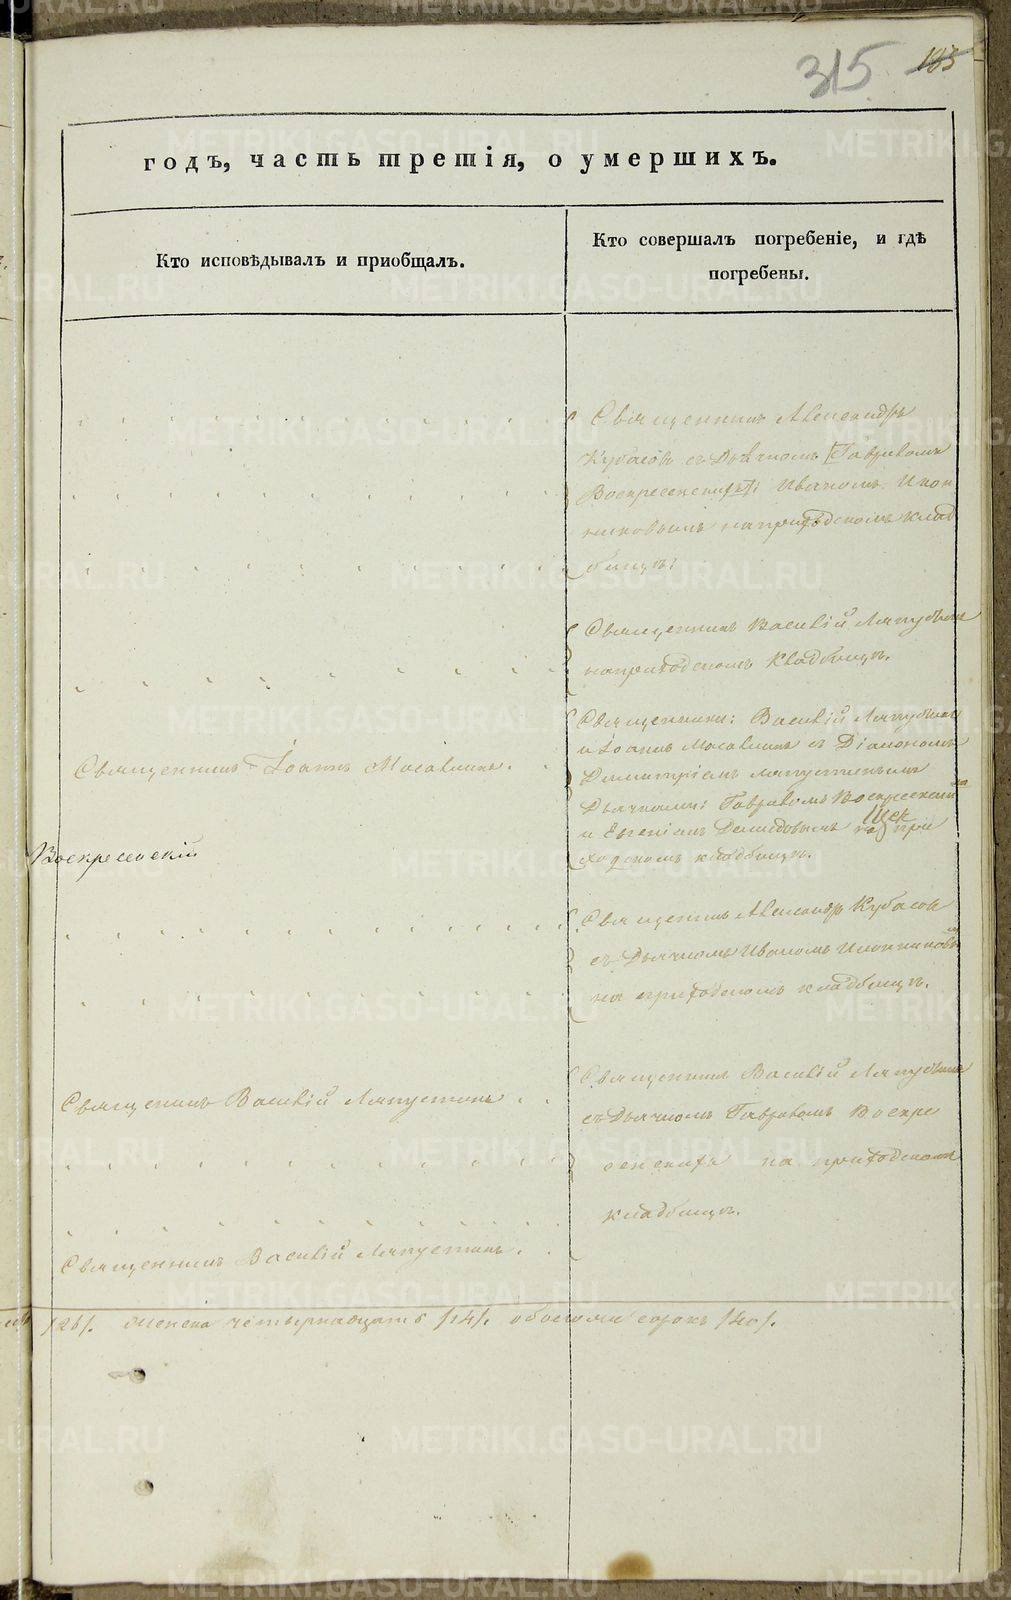 315 135
годъ, часть третія, о умершихъ.
Кто исповѣдывалъ и приобщалъ.
Кто совершалъ погребеніе, и гдѣ
погребены.
Священникъ Александръ
Кубасов съ Дьячкомъ Гаврiиломъ
Воскресенскимъ Иваномъ Икон
никовымъ на приходскомъ клад
бищѣ.
Священникъ Василій Ляпустинъ
на приходскомъ кладбищѣ.
Священникъ Іоаннъ Мосавнинъ.
Священники: Василій Ляпустинъ
и Іоаннъ Мосавнинъ съ Діакономъ
Димитріемъ Ляпустинымъ
Дьячками: Гавріиломъ Воскресенскимъ
и Евгеніемъ Демидовымъ на при
ходскомъ кладбищѣ.
Воскресенскій
Священникъ Александръ Кубасов
съ Дьячкомъ Иваномъ Иконниковымъ
на приходскомъ кладбищѣ.
Священникъ Василій Ляпустинъ.
Священникъ Василій Ляпустинъ
съ Дьячкомъ Гавріиломъ Воскре
сенскимъ на приходскомъ
кладбищѣ.
Священникъ Василій Ляпустинъ.
/26/. Женска четырнадцать /14/. обоего сорокъ /40/.
METRIKI.GASO-URAL.RU